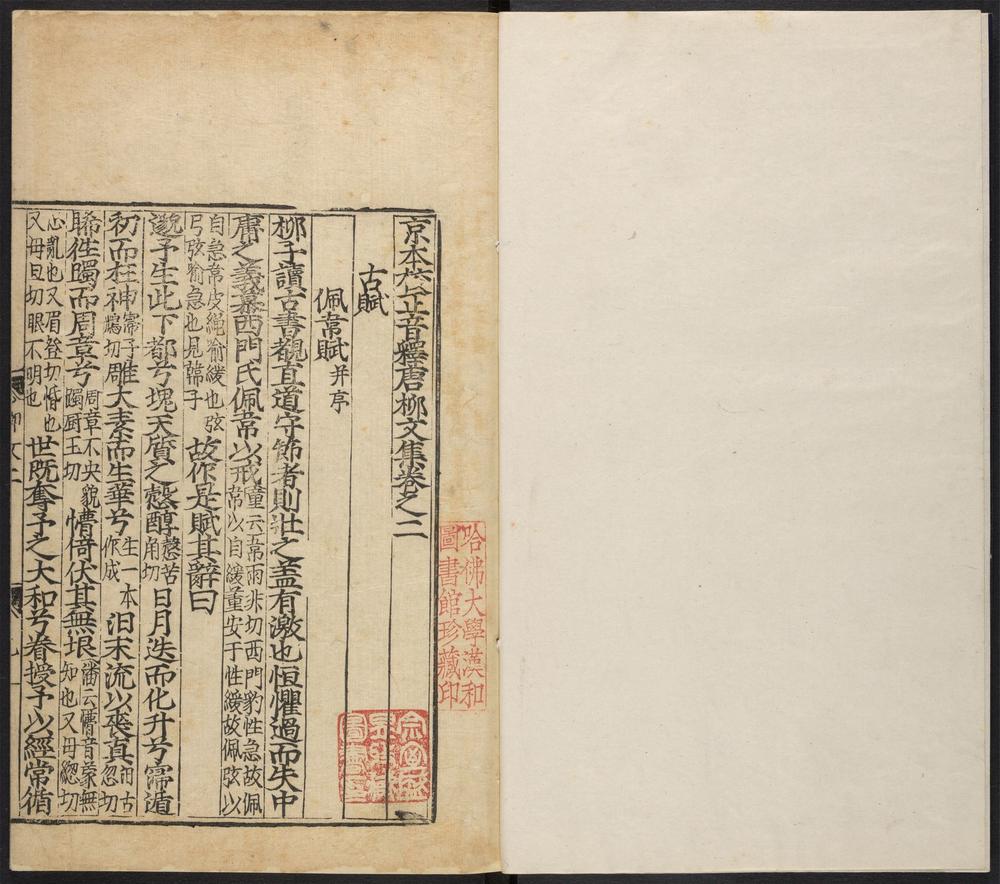 京本校正音釋唐柳文集卷之二
古賦
佩韋賦并序
柳子讀古書覩直道守節者則壯之蓋有激也恒懼過而失中
庸之義慕西門氏佩韋以戒童云韋雨非切西門豹性急故佩韋以自緩董安于性緩故佩弦以
自急韋皮繩喻緩也弦弓弦喻急也見韓子故作是賦其辭曰
邈予生此下都兮塊天質之愨醇愨苦角切日月迭而化升兮寖遁
初而枉神雕大素而生華兮生一本作成汨末流以喪真汨古忽切
睎往躅而周章兮周章不央貌躅厨玉切懵倚伏其無垠潘云懵音蒙無知也又毋總切
心亂也又眉登切惛也又毋亘切眼不明也世既奪予之大和兮眷授予以經常循
哈佛大學漢和圖書館珍藏印